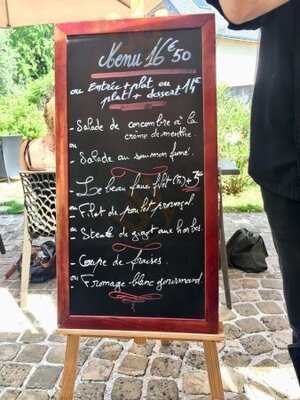 Menu 16€50
ou Entrée + plat ou
plat + dessert 14€
- Salade de concombre à la
crème de menthe.
ou
- Salade au saumon fumé.
- Le beau faux filet (
) + 7€
ou
- Filet de poulet provençal
ou
- Steak de gigot aux herbes
- Coupe de fraises.
ou
- Fromage blanc gourmand.